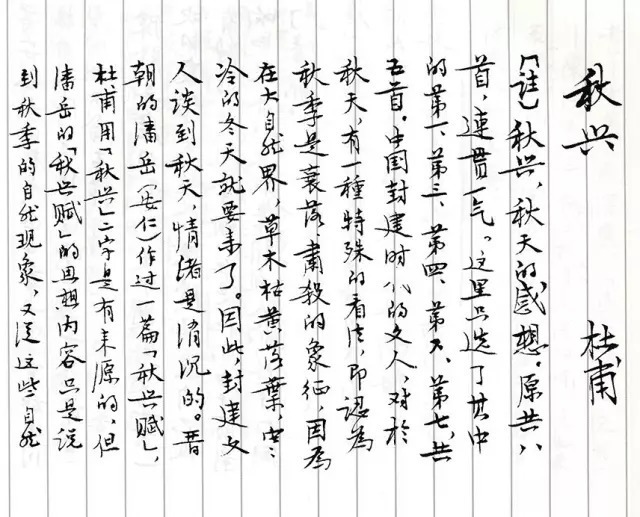 秋兴 杜甫
【註】秋兴，秋天的感想。原共八
首，連贯一气。这里只选了其中
的第一、第三、第四、第六、第七，共
五首。中国封建时代的文人，对於
秋天，有一種特殊的看法，即認為
秋季是衰落、肃殺的象征，因為
在大自然界，草木枯黄落葉，寒
冷的冬天就要来了。因此，封建文
人谈到秋天，情绪是消沉的。晋
朝的潘岳（安仁）作过一篇「秋兴赋」，
杜甫用「秋兴」二字是有来源的，但
潘岳的「秋兴赋」的思想内容只是说
到秋季的自然现象，又从这些自然